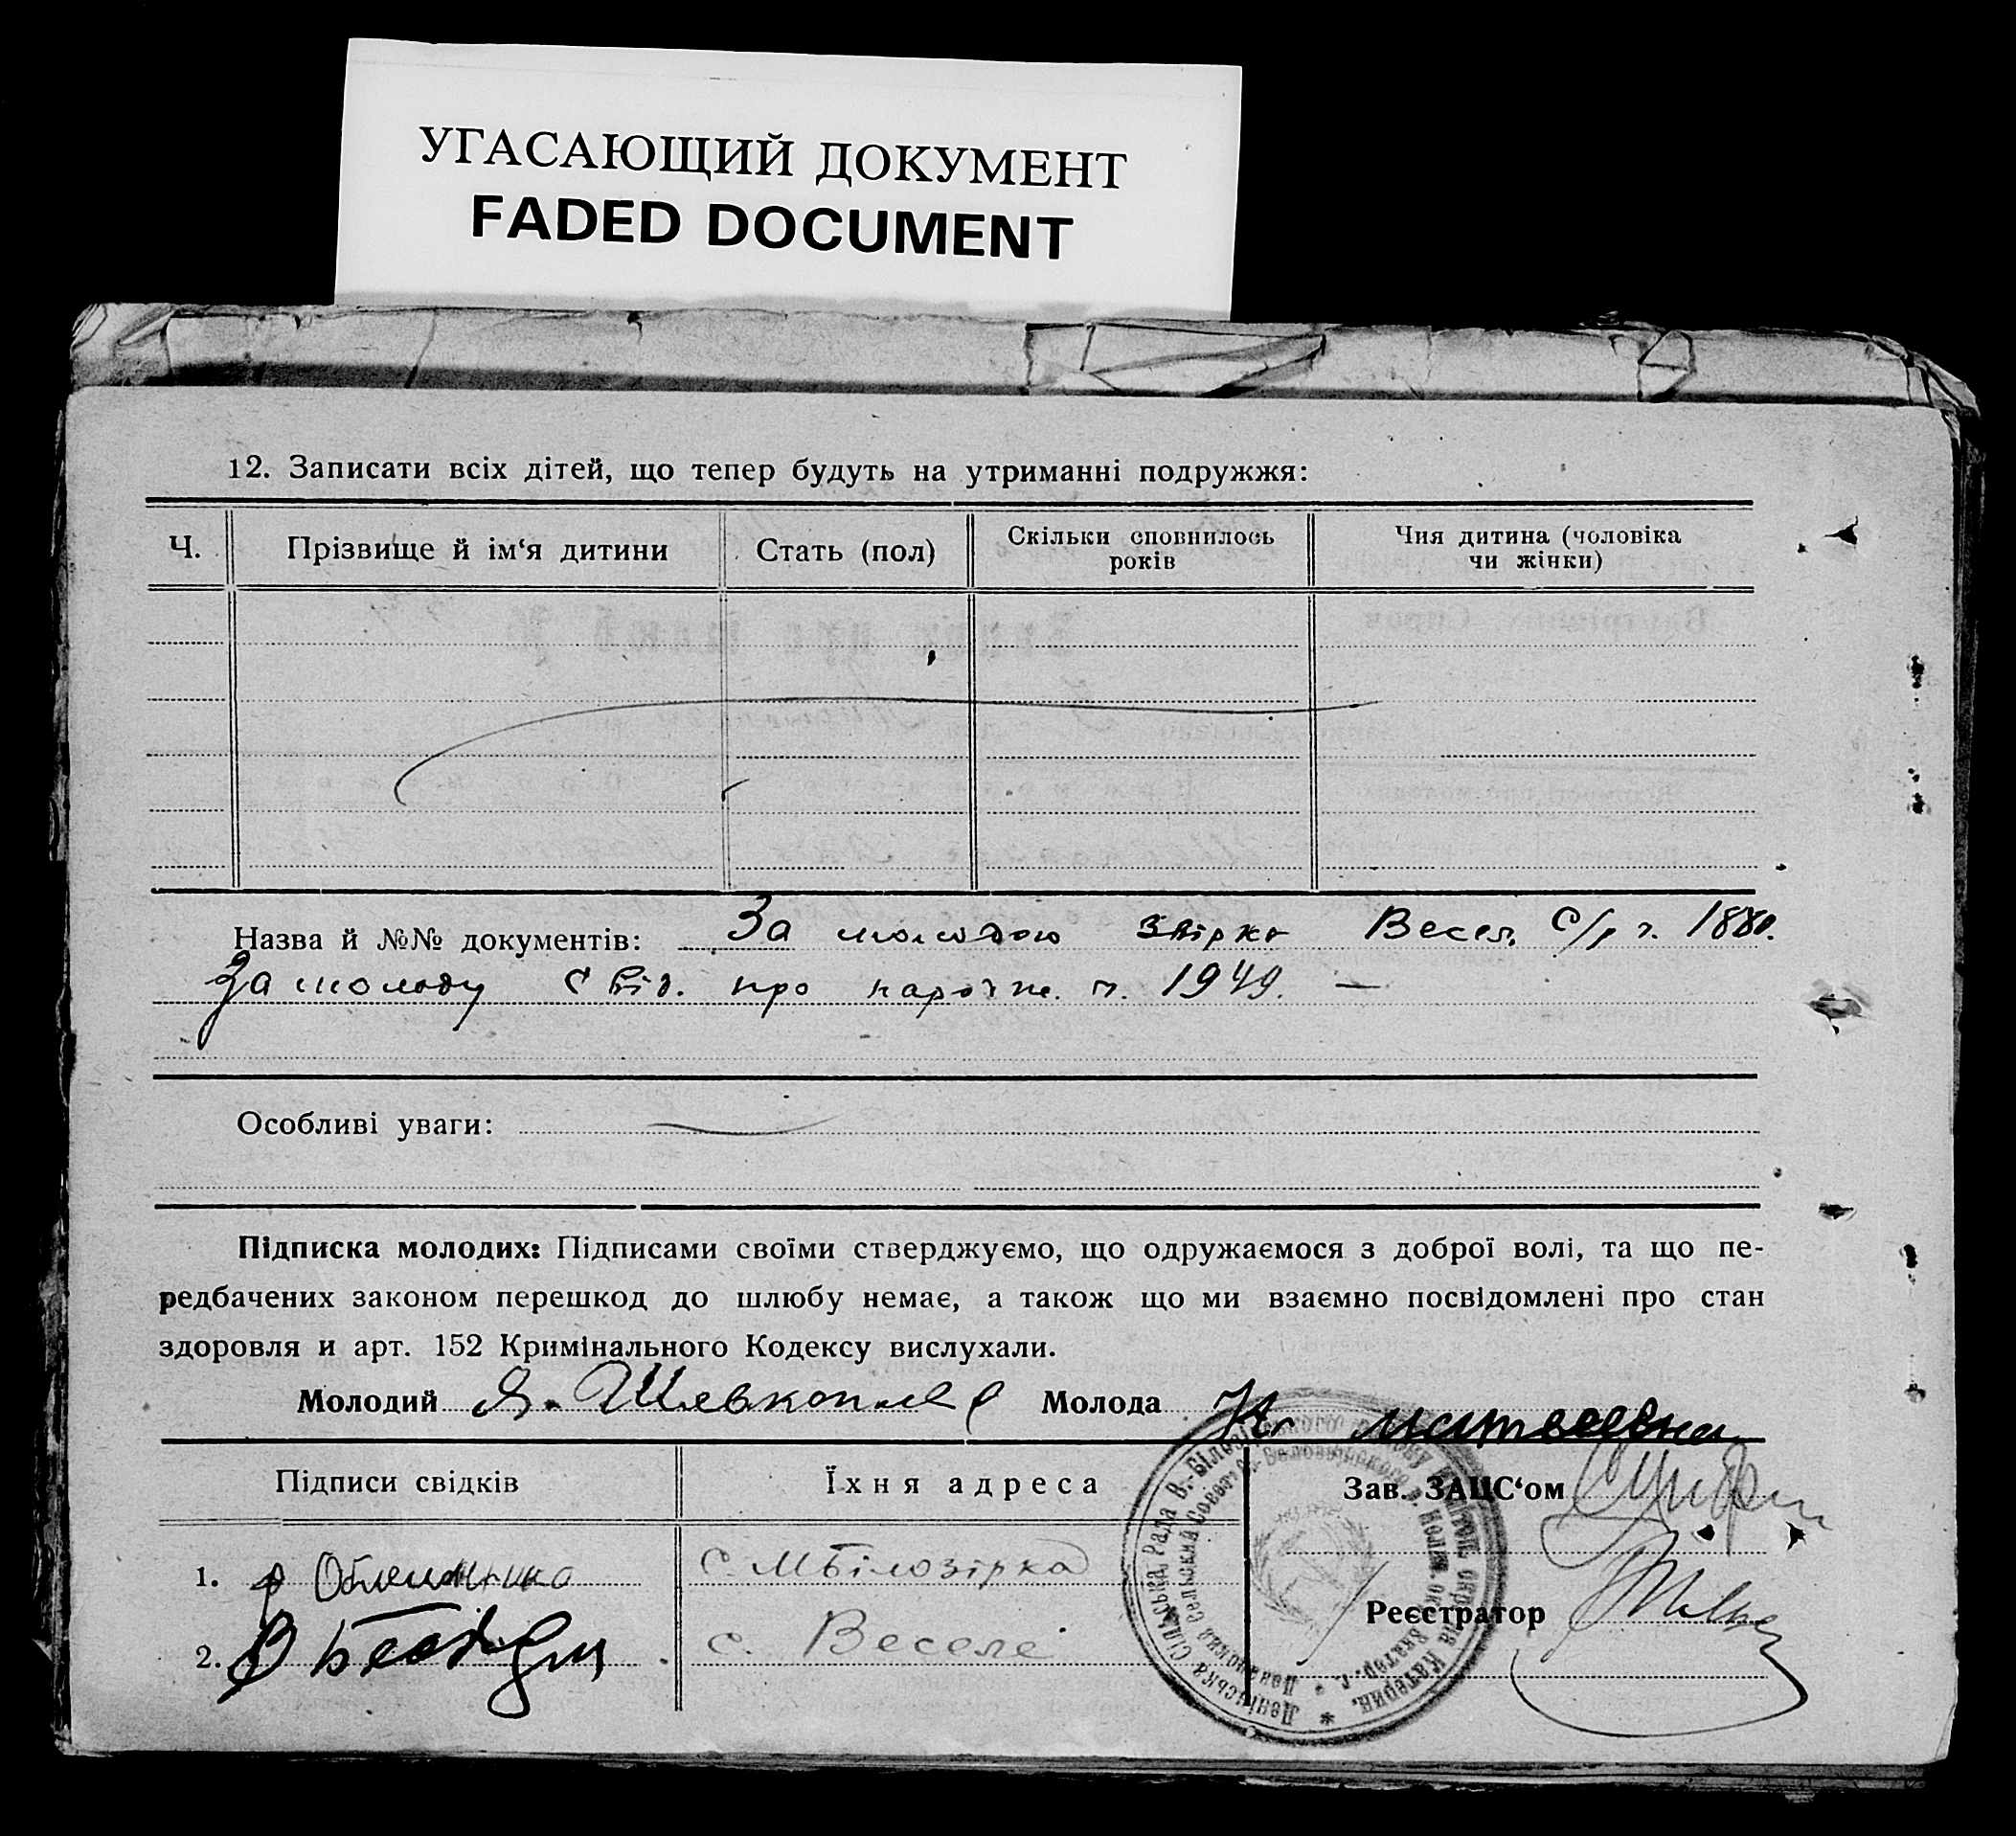 УГАСАЮЩИЙ ДОКУМЕНТ
FADED DOCUMENT
12. Записати всіх дітей, що тепер будуть на утриманні подружжя:
Ч.
Прізвище й ім‘я дитини
Стать (пол)
Скільки сповнилось
років
Чия дитина (чоловіка
чи жінки)
Назва й №№ документів: За молодою Весел. с/р ч. 1880.
За молоду свід. про ч. 1949. —
Особливі уваги:
Підписка молодих: Підписами своїми стверджуємо, що одружаємося з доброї волі, та що пе-
редбачених законом перешкод до шлюбу немає, а також що ми взаємно посвідомлені про стан
здоровля и арт. 152 Кримінального Кодексу вислухали.
Молодий Я. Молода
Підписи свідків
Їхня адреса
Зав. ЗАЦС‘ом
1. с. МБілозірка
Реєстратор
2. с. Веселе
Ленінська Сільська Рада